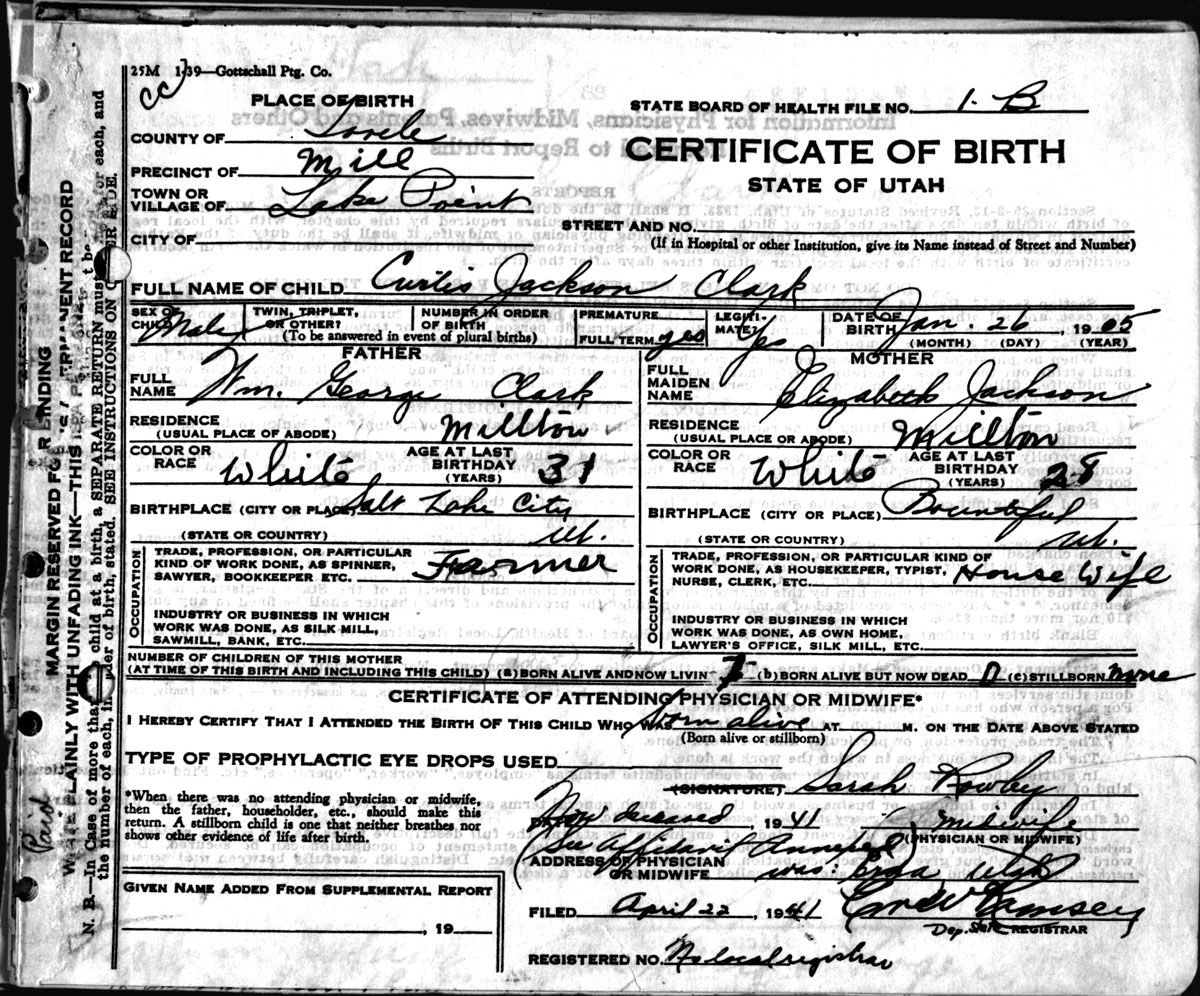 25M 1-39—Gottschall Ptg. Co.
CC
PLACE OF BIRTH
STATE BOARD OF HEALTH FILE NO. 1-B
COUNTY OF Tooele
CERTIFICATE OF BIRTH
PRECINCT OF Mill
STATE OF UTAH
TOWN OR
VILLAGE OF Lake Point
STREET AND NO.
CITY OF
(If in Hospital or other Institution, give its Name instead of Street and Number)
FULL NAME OF CHILD Curtis Jackson Clark
SEX OF CHILD Male
TWIN, TRIPLET, OR OTHER? NUMBER IN ORDER OF BIRTH
(To be answered in event of plural births)
PREMATURE
FULL TERM yes
LEGITIMATE? Yes
DATE OF BIRTH Jan. 26, 1905
(MONTH) (DAY) (YEAR)
FATHER
FULL NAME Wm. George Clark
RESIDENCE
(USUAL PLACE OF ABODE) Millton
COLOR OR RACE White AGE AT LAST BIRTHDAY 31
(YEARS)
BIRTHPLACE (CITY OR PLACE) Salt Lake City
(STATE OR COUNTRY) Ut.
OCCUPATION
TRADE, PROFESSION, OR PARTICULAR
KIND OF WORK DONE, AS SPINNER,
SAWYER, BOOKKEEPER ETC. Farmer
INDUSTRY OR BUSINESS IN WHICH
WORK WAS DONE, AS SILK MILL,
SAWMILL, BANK, ETC.
MOTHER
FULL MAIDEN NAME Elizabeth Jackson
RESIDENCE
(USUAL PLACE OR ABODE) Millton
COLOR OR RACE White AGE AT LAST BIRTHDAY 28
(YEARS)
BIRTHPLACE (CITY OR PLACE) Bountiful
(STATE OR COUNTRY) Ut.
OCCUPATION
TRADE, PROFESSION, OR PARTICULAR KIND OF
WORK DONE, AS HOUSEKEEPER, TYPIST,
NURSE, CLERK, ETC. House Wife
INDUSTRY OR BUSINESS IN WHICH
WORK WAS DONE, AS OWN HOME,
LAWYER'S OFFICE, SILK MILL, ETC.
NUMBER OF CHILDREN OF THIS MOTHER
(AT TIME OF THIS BIRTH AND INCLUDING THIS CHILD) (a) BORN ALIVE AND NOW LIVIN (b) BORN ALIVE BUT NOW DEAD 0 (c) STILLBORN none
CERTIFICATE OF ATTENDING PHYSICIAN OR MIDWIFE*
I HEREBY CERTIFY THAT I ATTENDED THE BIRTH OF THIS CHILD WHO WAS born alive AT M. ON THE DATE ABOVE STATED
(Born alive or stillborn)
TYPE OF PROPHYLACTIC EYE DROPS USED
*When there was no attending physician or midwife,
then the father, householder, etc., should make this
return. A stillborn child is one that neither breathes nor
shows other evidence of life after birth.
(SIGNATURE) Sarah
Now deceased 1941 midwife
(See Affidavit Annexed) (PHYSICIAN OR MIDWIFE)
ADDRESS OF PHYSICIAN
OR MIDWIFE was: Erda Utah
GIVEN NAME ADDED FROM SUPPLEMENTAL REPORT
, 19
FILED April 22, 1941
Dep. State REGISTRAR
REGISTERED NO. No local registrar
MARGIN RESERVED FOR BINDING
N. B.—In Case of more than child at a birth, a SEPARATE RETURN must be for each, and
the number of each, in order of birth, stated. SEE INSTRUCTIONS ON
Paid